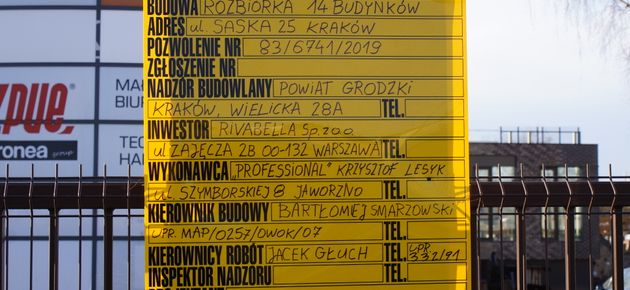 BUDOWA ROZBIÓRKA 14 BUDYNKÓW
ADRES ul. SASKA 25 KRAKÓW
POZWOLENIE NR 83/6741/2019
ZGŁOSZENIE NR
NADZÓR BUDOWLANY POWIAT GRODZKI
KRAKÓW, WIELICKA 28A TEL.
INWESTOR RIVABELLA Sp. z o.o.
ul ZAJĘCZA 2B 00-132 WARSZAWA TEL.
WYKONAWCA „PROFESSIONAL" KRZYSZTOF LESYK
ul. SZYMBORSKIEJ 8 JAWORZNO TEL.
KIEROWNIK BUDOWY BARTŁOMIEJ SMARZOWSKI
UPR. MAP/0257/OWOK/07 TEL.
KIEROWNICY ROBÓT JACEK GŁUCH TEL. UPR 332/91
INSPEKTOR NADZORU TEL.
pue.
ronea group
MAŁ
BIUR
TEC
HAL